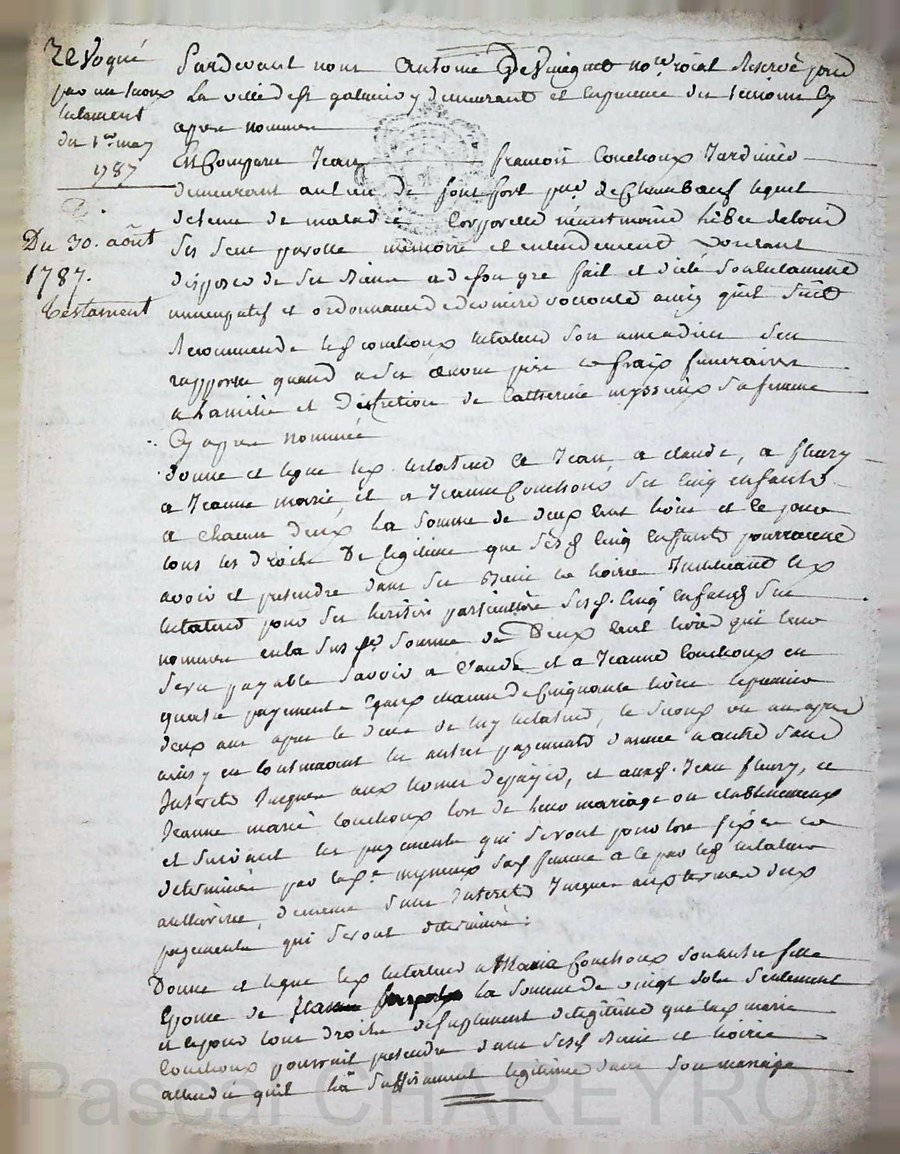 Revoqué
par un nouv
testament
du 1er may
1787
Du 30. août
1787.
testament
Pardevant nous Antoine no.re roial reservé pour
La ville de st galmier y demeurant et en presence des temoins cy
apres nommes
Est Comparu Jean francois Couchoux Jardinier
demeurant au lieu de font fort pse de Chambœuf lequel
detenu de maladie Corporelle neantmoins libre de tous
ses sens parolle memoire et entendement voulant
disposer de ses biens a de son gre fait et dicté son testament
nuncupatif et ordonnance de derniere volonté ainsy qu'il suit
Recommande led Couchoux testateur son ame a dieu s'en
rapporte quand a ses œuvres pies et frais funeraires
a Lamitié et discretion de Catherine sa femme
Cy apres nommée
donne et legue led testateur a Jean, a claude, a fleury
a Jeanne marie et a Jeanne Couchoux ses cinq enfants
a chacun d'eux la somme de deux cent livres et ce pour
tous les droits De legitime que sesd cinq enfants pourraient
avoir et pretendre dans ses biens et hoirie Instituant led
testateur pour ses heritiers particuliers sesd. cinq enfants sus
nommes en la susd somme de Deux cent livres qui leur
sera payable savoir a Claude et a Jeanne Couchoux en
quatre payements Egaux chacun de Cinquante livres le premier
deux ans apres le deces de luy testateur, le second un an apres
ainsy en Continuant les autres payements d'année a autre sans
Interets Jusques aux termes et auxd. Jean fleury, et
Jeanne marie Couchoux lors de leur mariage ou etablissement
et suivant les payements qui seront pour lors fixés et
determinés par lad. sad femme a ce par led testateur
authorisée, de meme sans Interets Jusques aux termes des
payements qui seront determinés:
Donne et legue led testateur a Maria Couchoux son autre fille
Epouse de la somme de vingt sols seulement
et ce pour tous droits de suplement de legitime que lad marie
Couchoux pourrait pretendre dans sesd biens et hoirie
attendu qu'il l'a suffisament legitimée dans son mariage
Pascal CHAREYRON